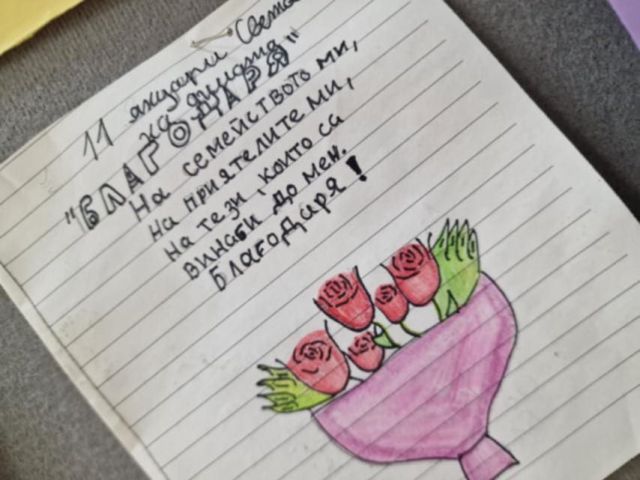 11 януари Света
на думата
"БЛАГОДАРЯ"
На семейството ми,
на приятелите ми,
на тези, които са
винаги до мен.
Благодаря!